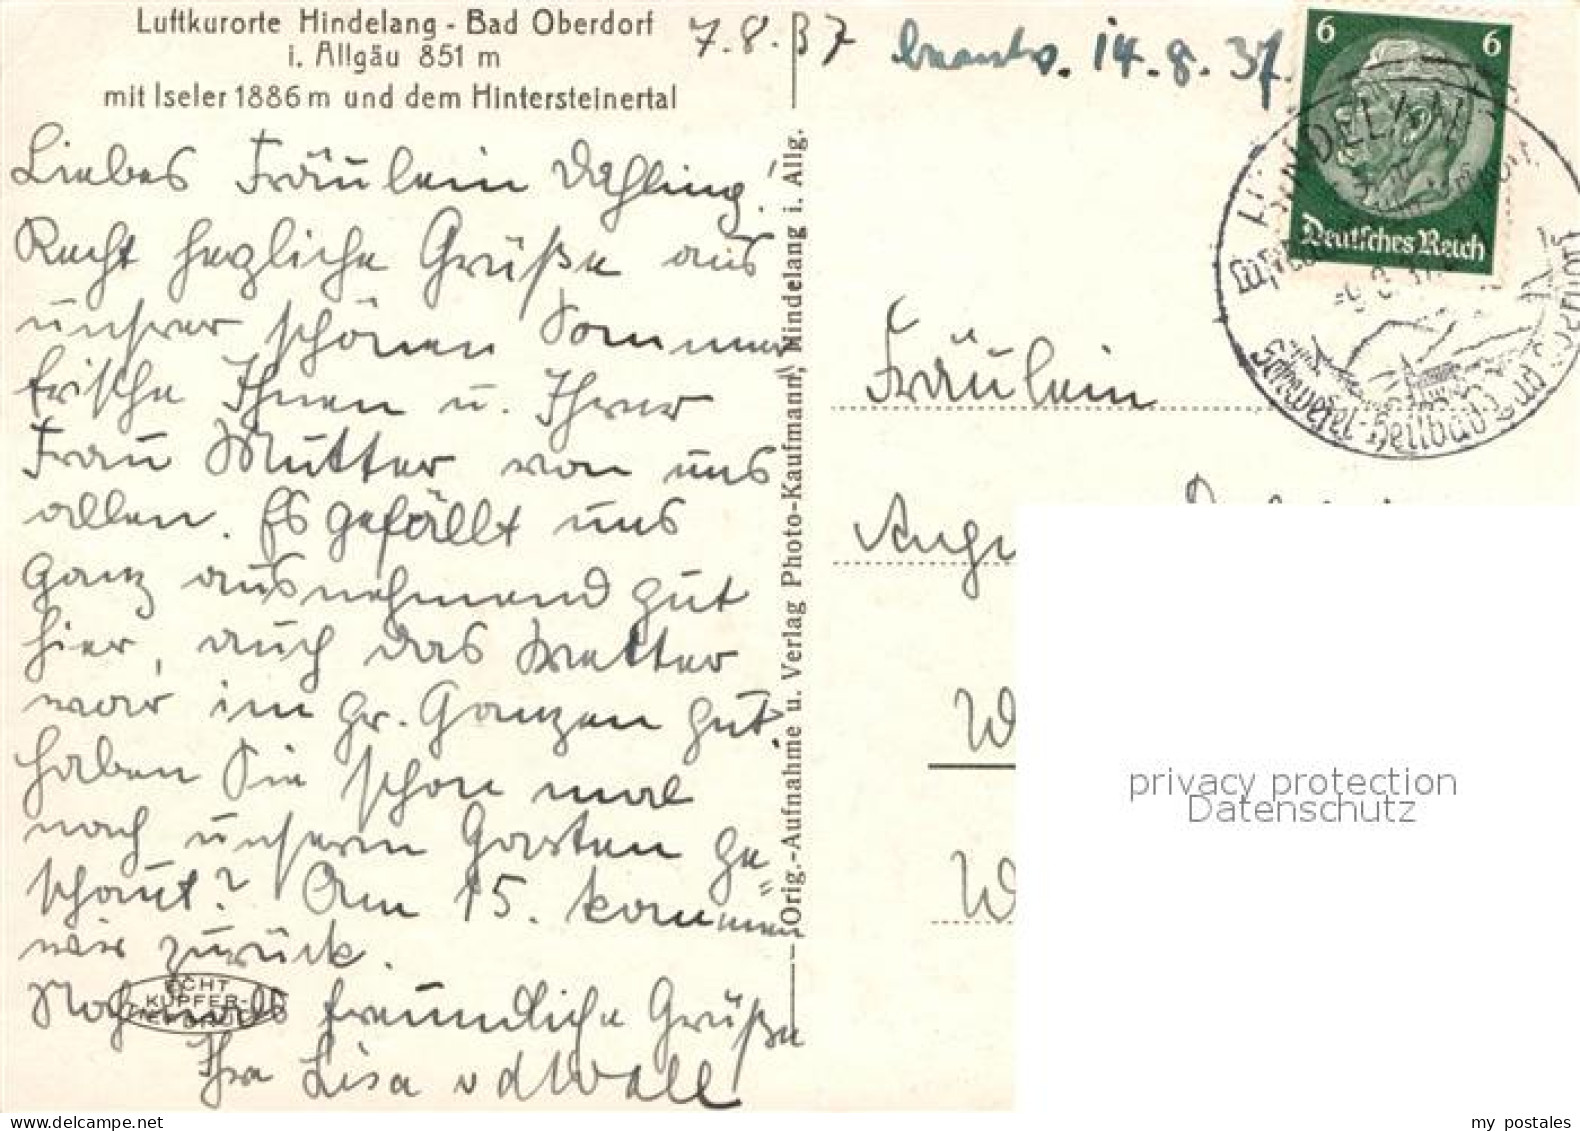 Luftkurorte Hindelang - Bad Oberdorf
i. Allgäu 851 m
mit Iseler 1886 m und dem Hintersteinertal
7.8.37
14.8.37.
Liebes Fräulein Dehling!
Recht herzliche Grüße aus
unsrer schönen Sommer
frische Ihnen u. Ihrer
Frau Mutter von uns
allen. Es gefällt uns
ganz ausnehmend gut
hier, auch das Wetter
war im gr. Ganzen gut.
Haben Sie schon mal
nach unserm Garten ge=
schaut? Am 15. kommen
wir zurück.
Nochmals freundliche Grüße
Ihre Lisa vdWall
ECHT
KUPFER-
Orig.-Aufnahme u. Verlag Photo-Kaufmann, Hindelang i. Allg.
6 6
Deutsches Reich
HINDELANG
Fräulein
W
W
privacy protection
Datenschutz
my postales